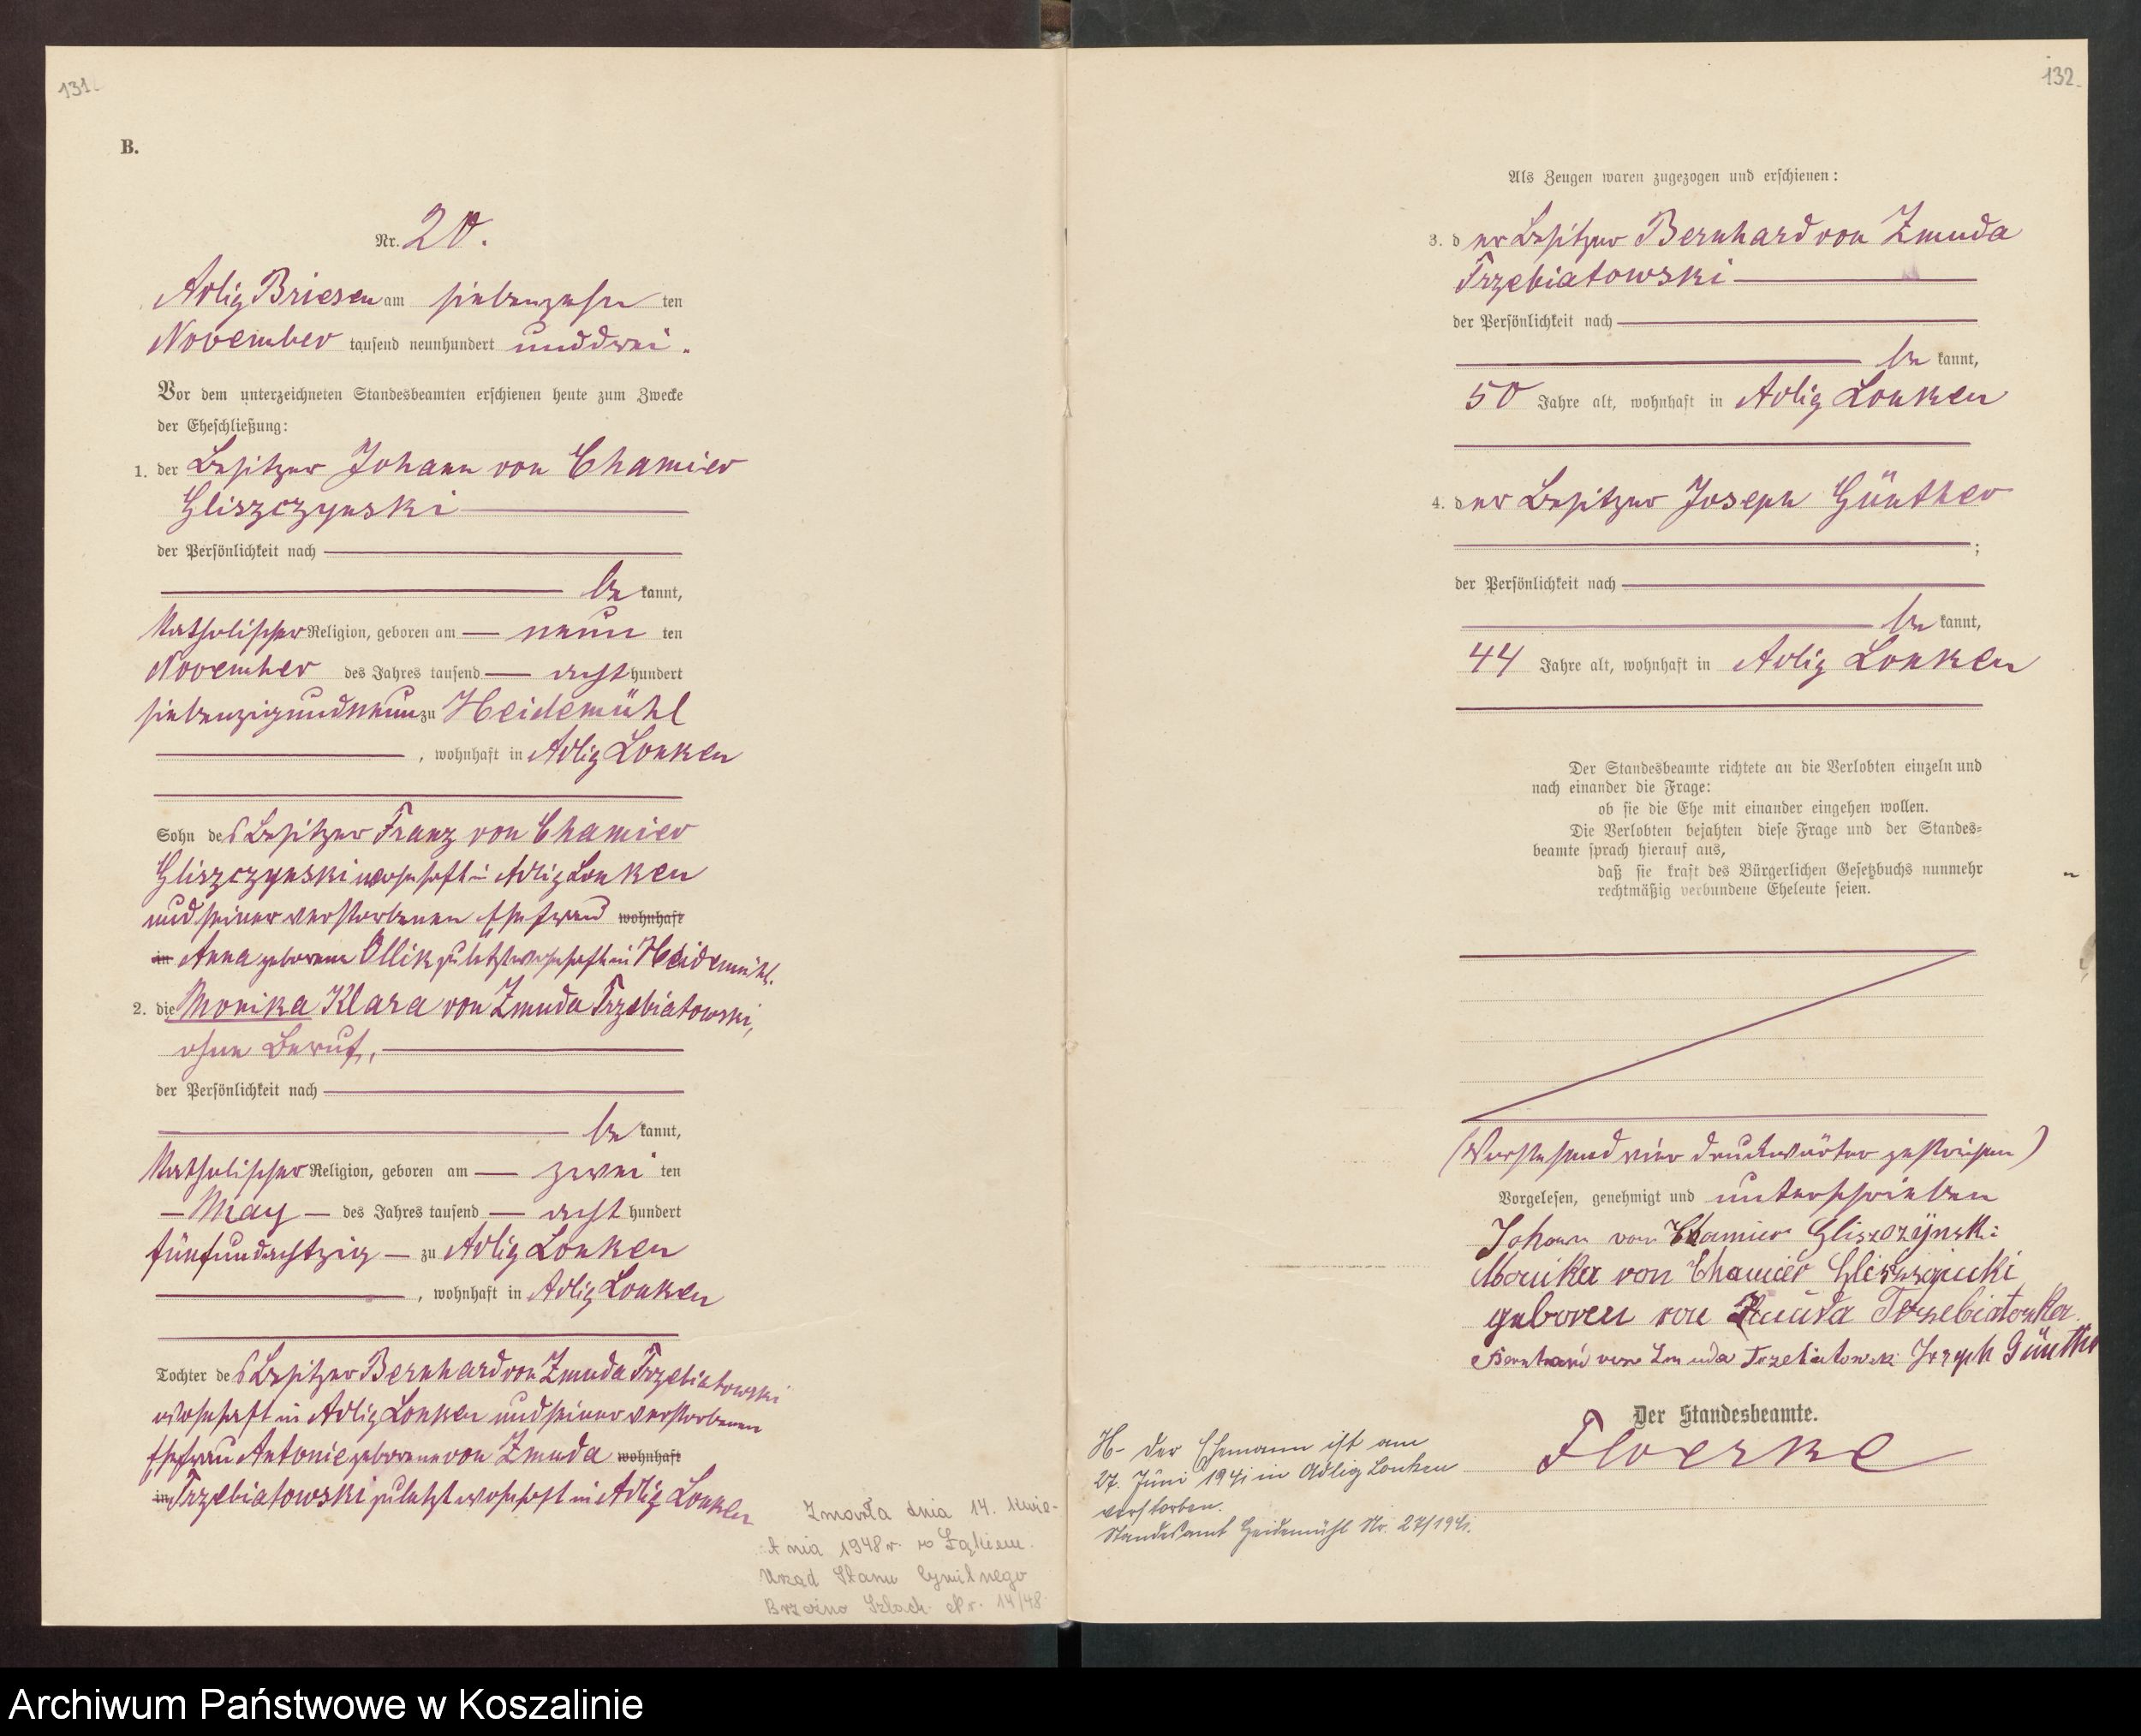 131.
B.
Nr. 20.
Adlig Briesen am siebenzehn ten
November tausend neunhundert und drei.
Vor dem unterzeichneten Standesbeamten erschienen heute zum Zwecke
der Eheschließung:
1. der Besitzer Johann von Chamier
Gliszczynski
der Persönlichkeit nach
be kannt,
katholischer Religion, geboren am neun ten
November des Jahres tausend acht hundert
siebenzig und neun zu Heidemühl
, wohnhaft in Adlig Lonken
Sohn des Besitzer Franz von Chamier
Gliszczynski wohnhaft in Adlig Lonken
und seiner verstorbenen Ehefrau wohnhaft
in Anna geborene Ollik zuletzt wohnhaft in Heidemühl.
2. die Monika Klara von Zmuda Trzebiatowski,
ohne Beruf,
der Persönlichkeit nach
be kannt,
katholischer Religion, geboren am zwei ten
May des Jahres tausend acht hundert
fünfundachtzig zu Adlig Lonken
, wohnhaft in Adlig Lonken
Tochter des Besitzer Bernhard von Zmuda Trzebiatowski
wohnhaft in Adlig Lonken und seiner verstorbenen
Ehefrau Antonie geborene von Zmuda wohnhaft
in Trzebiatowski zuletzt wohnhaft in Adlig Lonken
Zmarła dnia 14. kwie-
tnia 1948 r. w Łąkiem.
Urząd Stanu Cywilnego
Brzeźno Szlach. Nr. 14/48
132.
Als Zeugen waren zugezogen und erschienen:
3. der Besitzer Bernhard von Zmuda
Trzebiatowski
der Persönlichkeit nach
be kannt,
50 Jahre alt, wohnhaft in Adlig Lonken
4. der Besitzer Joseph Günther
;
der Persönlichkeit nach
be kannt,
44 Jahre alt, wohnhaft in Adlig Lonken
Der Standesbeamte richtete an die Verlobten einzeln und
nach einander die Frage:
ob sie die Ehe mit einander eingehen wollen.
Die Verlobten bejahten diese Frage und der Standes=
beamte sprach hierauf aus,
daß sie kraft des Bürgerlichen Gesetzbuchs nunmehr
rechtmäßig verbundene Eheleute seien.
(Vorstehend vier Druckwörter gestrichen)
Vorgelesen, genehmigt und unterschrieben
Johann von Chamier Gliszczÿnski
Monika von Chamier Gliszczynski
geboren von Zmuda Trzebiatowska
Bernhard von Zmuda Trzebiatowski Joseph Günther
Der Standesbeamte.
Floerke
H- Der Ehemann ist am
27. Juni 1941 in Adlig Lonken
verstorben.
Standesamt Heidemühl Nr. 27/1941.
Archiwum Państwowe w Koszalinie